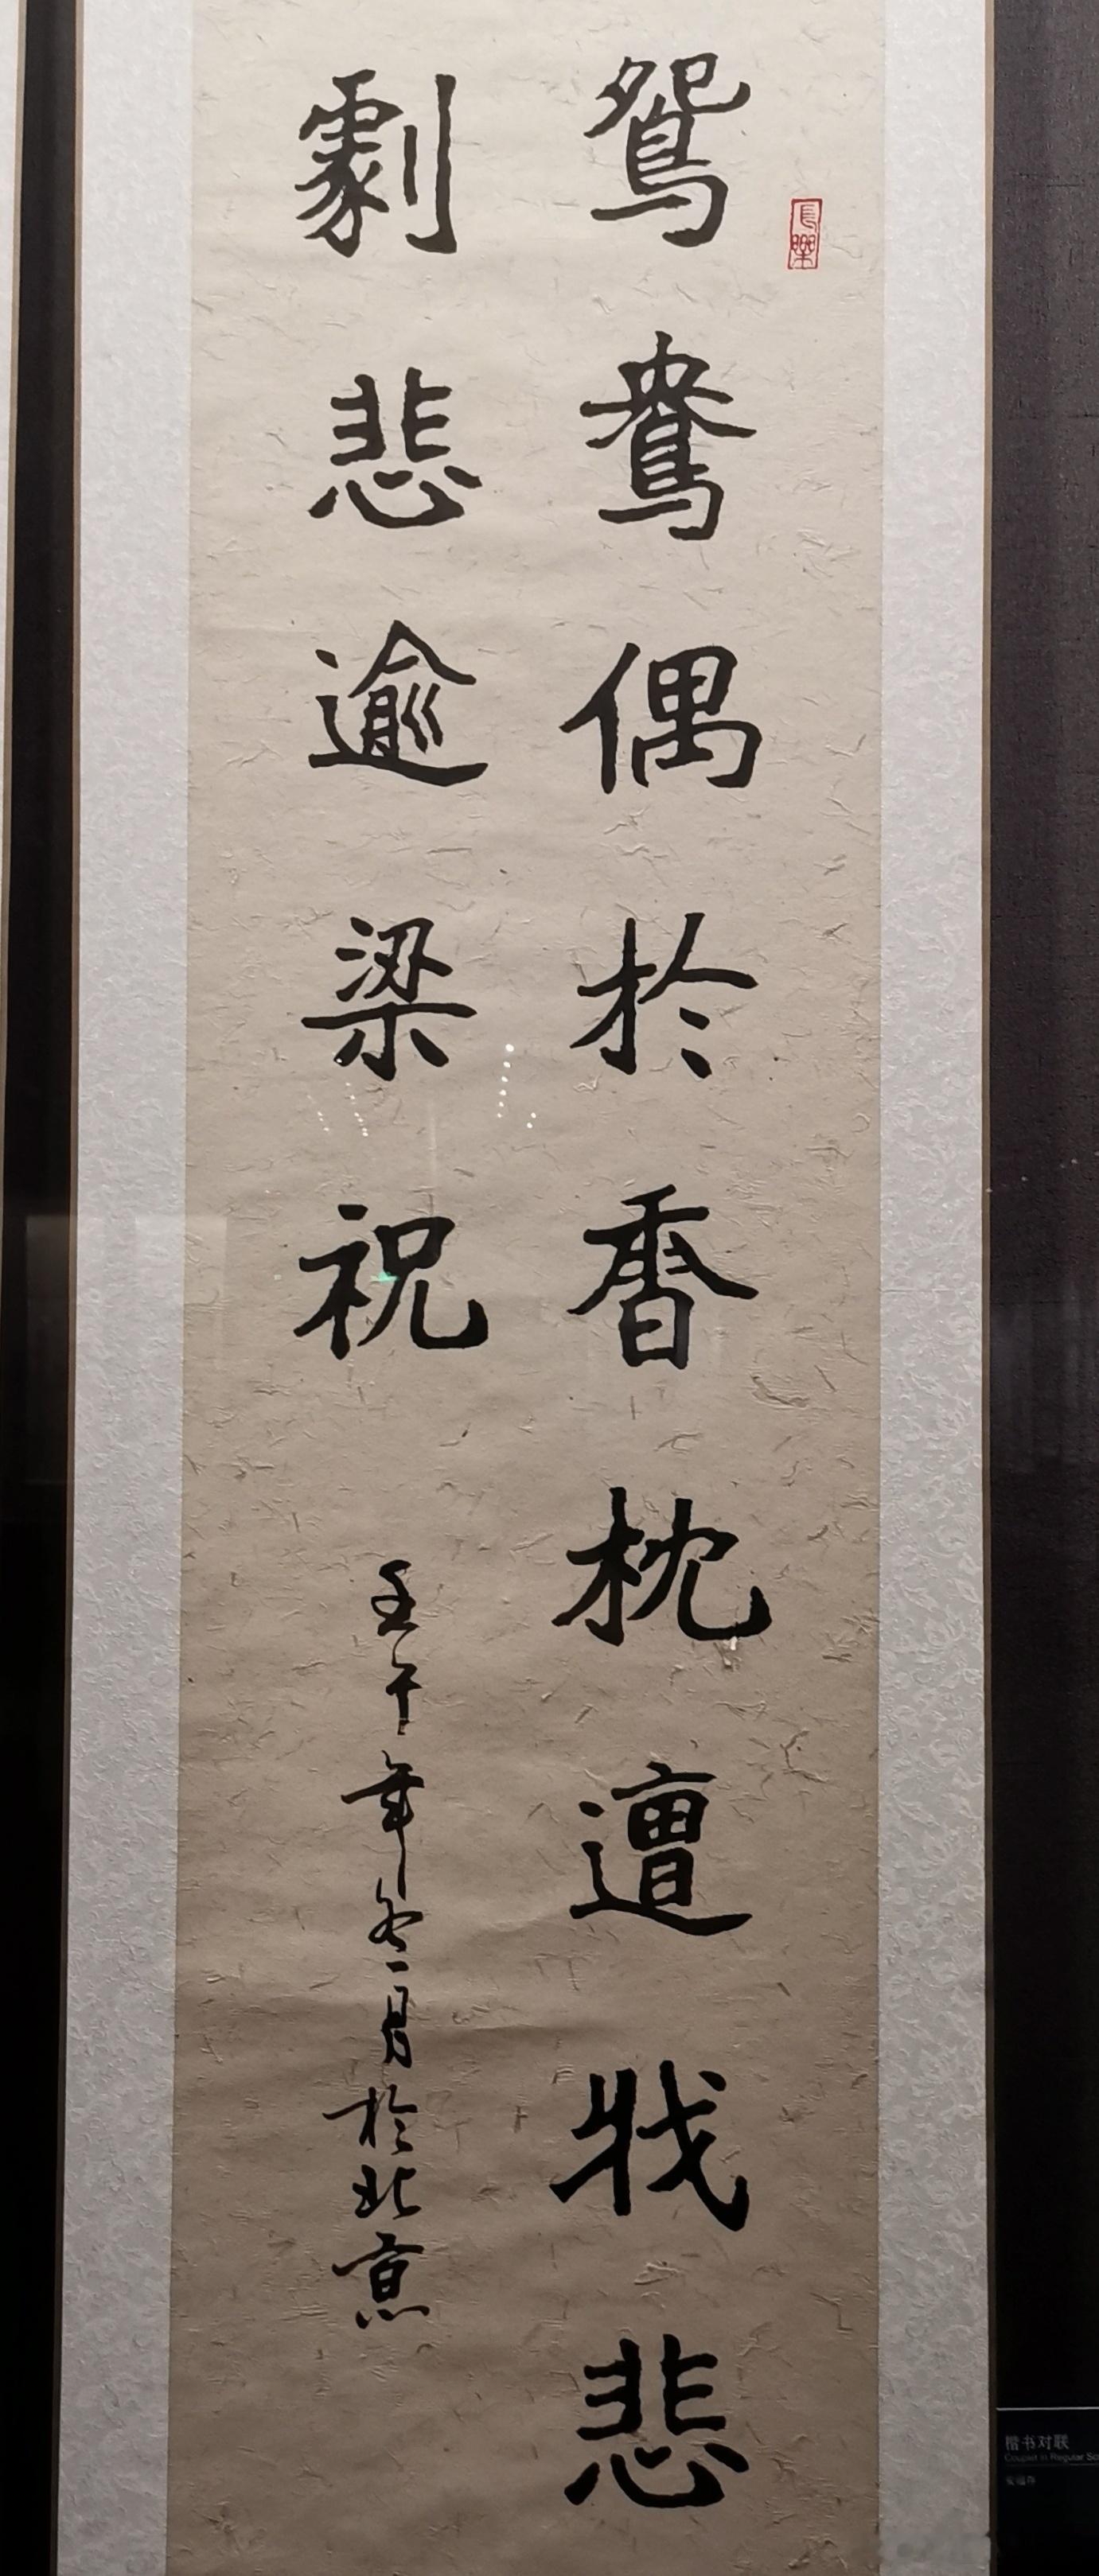 長樂
鴛鴦偶於香枕遭戕悲
劇悲逾梁祝
壬午年冬一月於北京
楷书对联
Couplet in Regular Sc